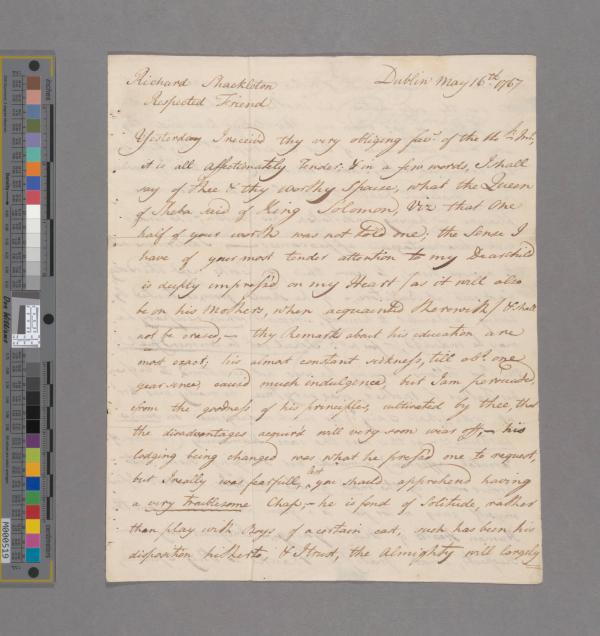 Richard Shackleton Dublin May 16th 1767
Respected Friend
Yesterday I receivd thy very obliging favr. of the 11th Inst,
it is all affectionately Tender, & in a few words, I shall
say of Thee & thy worthy Spouse, what the Queen
of Sheba said of King Solomon, Viz that One
half of your worth was not told me; the Sense I
have of your most tender attention to my Dear Child
is deeply impress'd on my Heart (as it will also
be on his Mothers, when acquainted therewith) & shall
not be erased, – thy Remarks about his education are
most exact; his almost constant sickness, till abt. one
year since, caused much indulgence, but I am perswaded,
from the goodness of his principles, cultivated by thee, that
the disadvantages acquir'd will very soon wear off, – his
lodging being changed was what he press'd me to request,
but I really was fearfull, that you should apprehend having
a very troublesome Chap, – he is fond of Solitude, rather
than play with Boys of a certain cast, such has been his
disposition hitherto, & I trust, the Almighty will largely
inches
centimeters
Don Williams
M000519